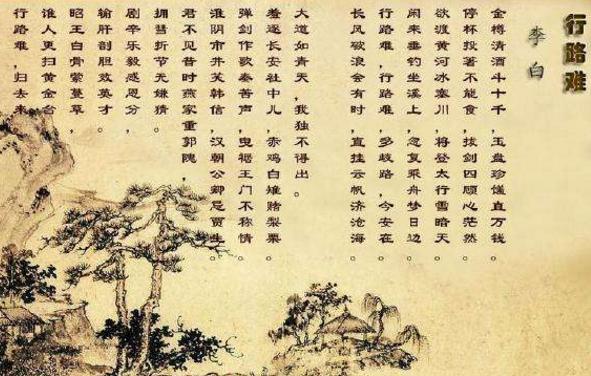 行路难
李白
金樽清酒斗十千,玉盘珍馐直万钱。
停杯投箸不能食,拔剑四顾心茫然。
欲渡黄河冰塞川,将登太行雪暗天。
闲来垂钓坐溪上,忽复乘舟梦日边。
行路难,行路难,多歧路,今安在。
长风破浪会有时,直挂云帆济沧海。
大道如青天,我独不得出。
羞逐长安社中儿,赤鸡白雉赌梨栗。
弹剑作歌奏苦声,曳裾王门不称情。
淮阴市井笑韩信,汉朝公卿忌贾生。
君不见昔时燕家重郭隗,
拥彗折节无嫌猜。
剧辛乐毅感恩分,
输肝剖胆效英才。
昭王白骨萦蔓草,
谁人更扫黄金台。
行路难,归去来